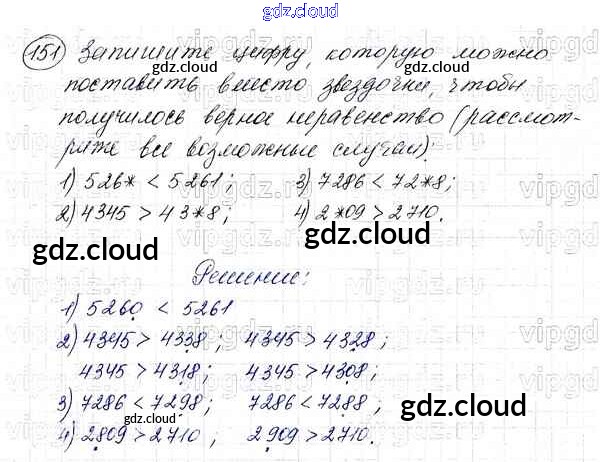 gdz.cloud
151 Запишите цифру, которую можно
gdz.cloud
поставить вместо звездочки, чтобы
получилось верное неравенство (рассмот-
рите все возможные случаи).
1) 526* < 5261; 3) 7286 < 72*8;
2) 4345 > 43*8; 4) 2*09 > 2710.
gdz.cloud
gdz.cloud
Решение:
1) 5260 < 5261
2) 4345 > 4338; 4345 > 4328;
4345 > 4318; 4345 > 4308;
3) 7286 < 7298; 7286 < 7288;
gdz.cloud
gdz.cloud
4) 2809 > 2710; 2909 > 2710.
gdz.cloud